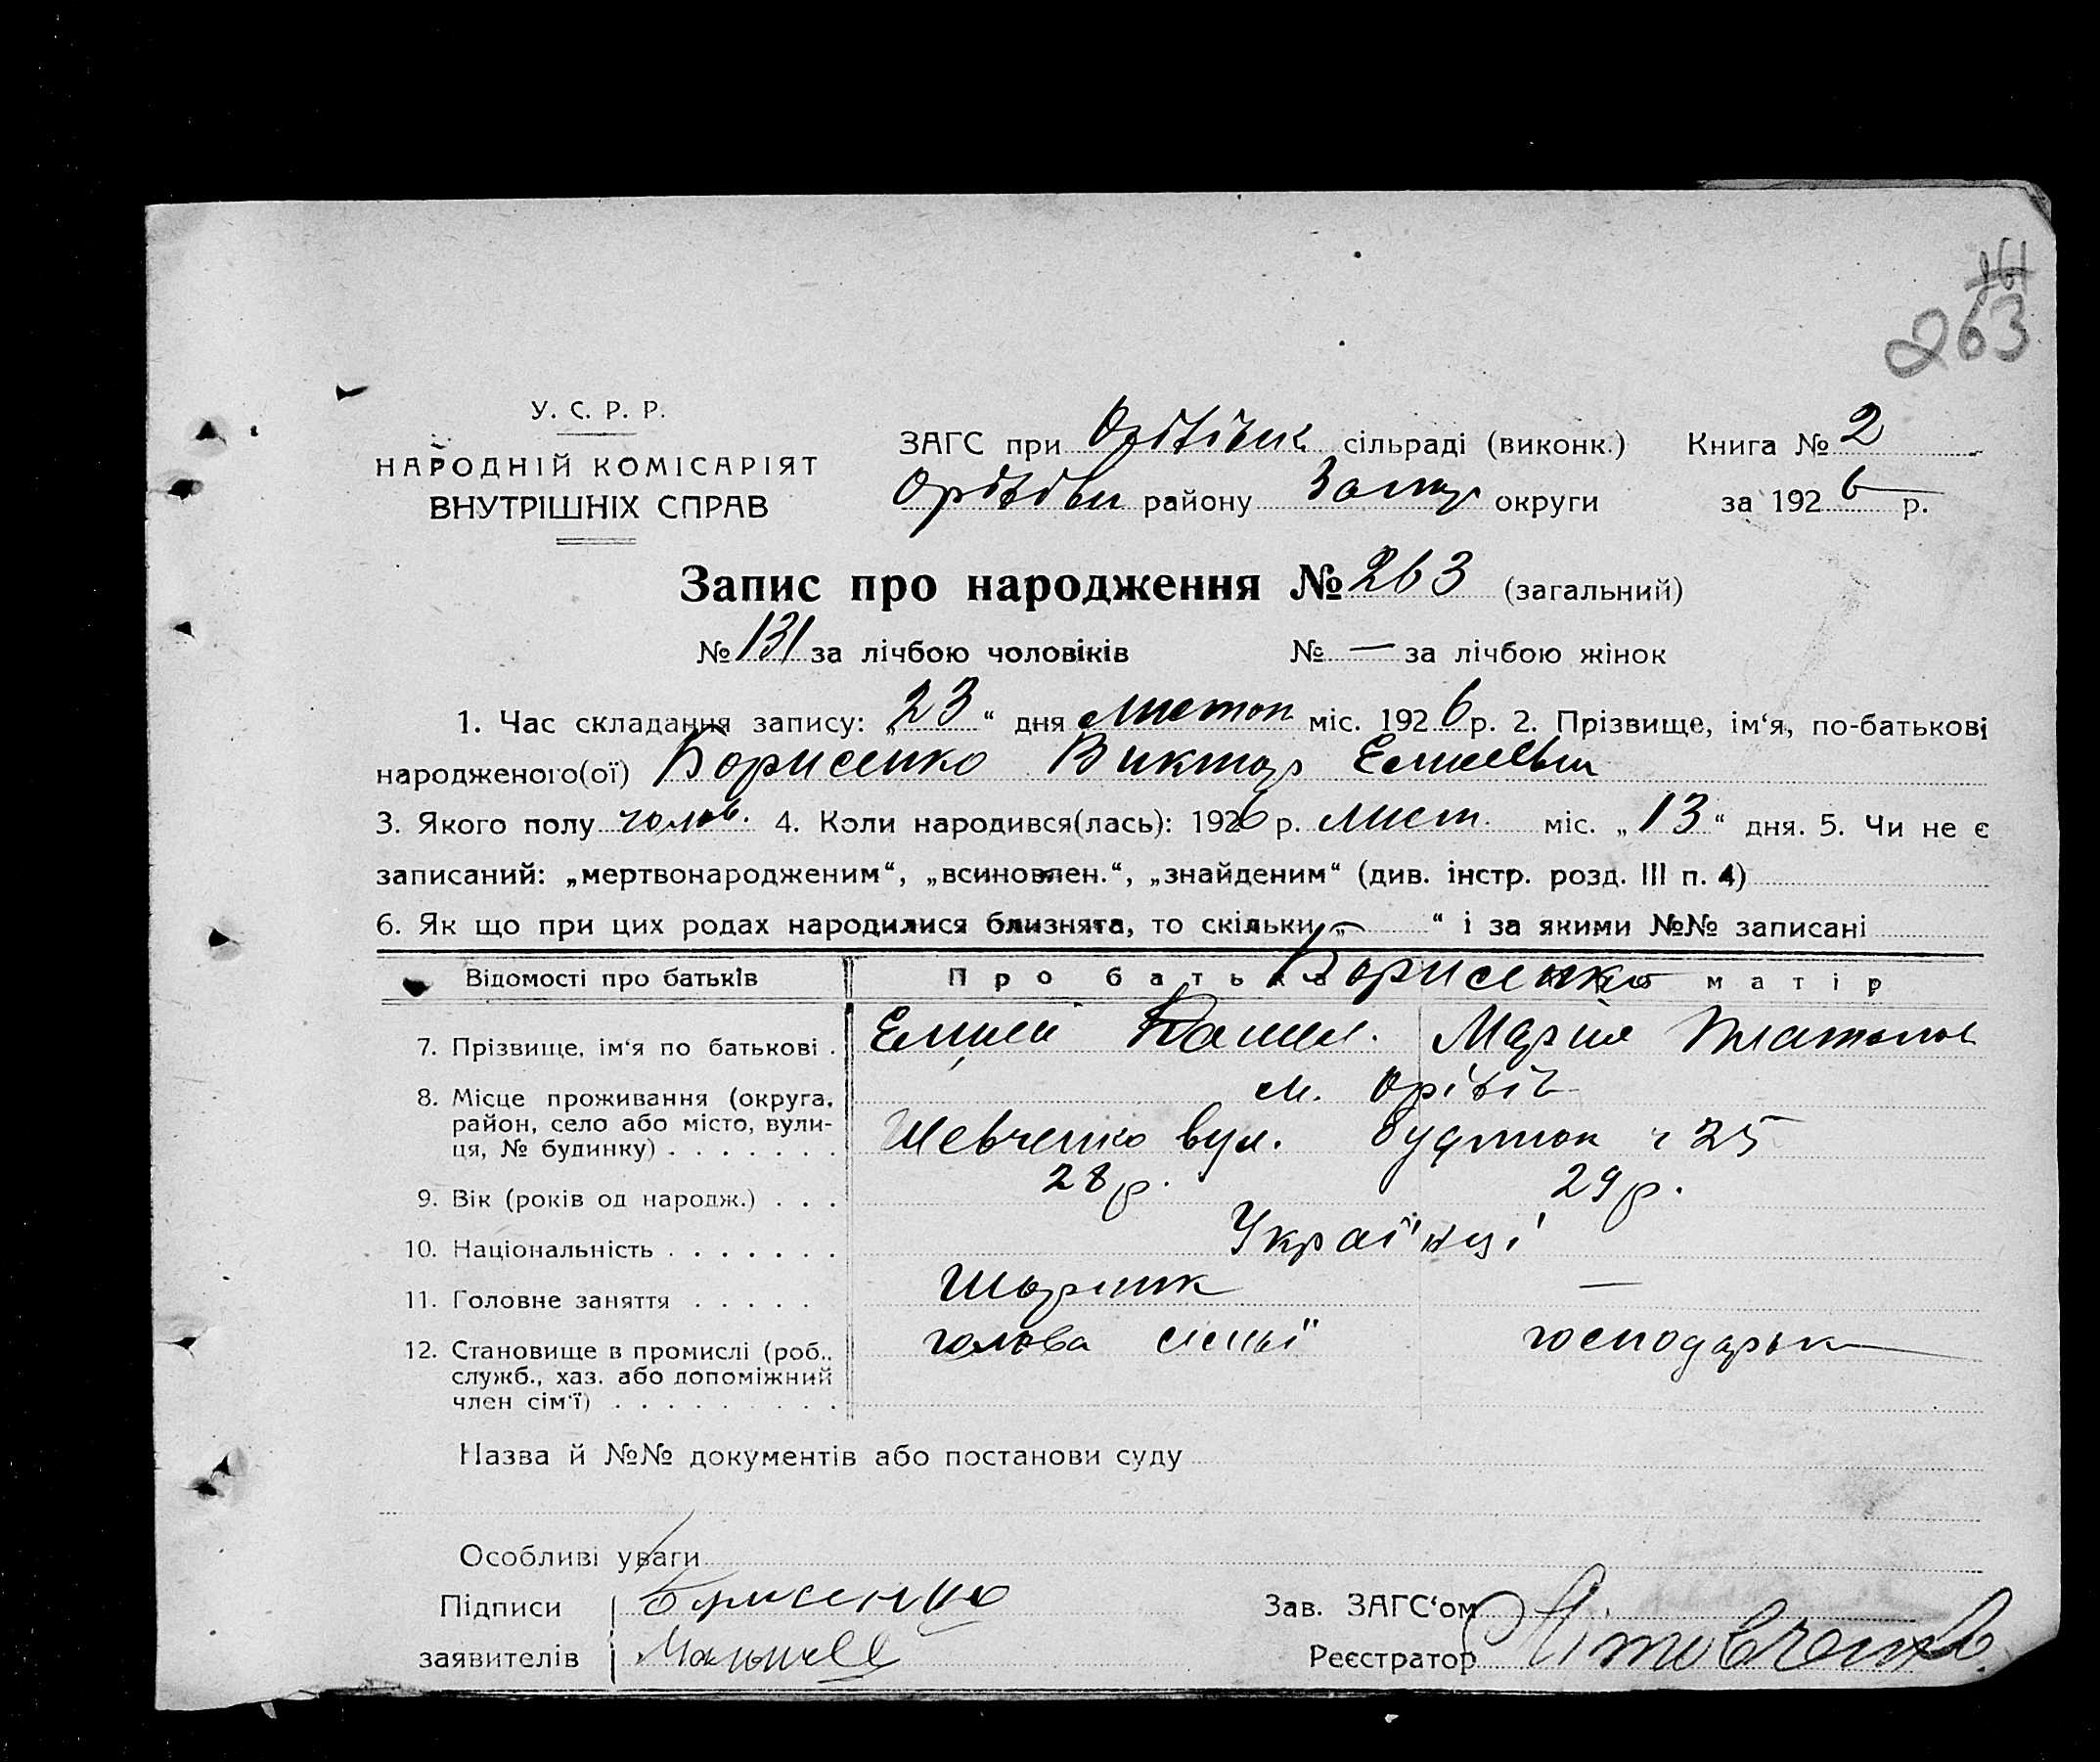 263
У. С. Р. Р.
НАРОДНІЙ КОМІСАРІЯТ
ВНУТРІШНІХ СПРАВ
ЗАГС при сільраді (виконк.) Книга № 2
району округи за 1926 р.
Запис про народження № 263 (загальний)
№ 131 за лічбою чоловіків № — за лічбою жінок
1. Час складання запису: „23“ дня листоп міс. 1926 р. 2. Прізвище, ім‘я, по-батькові
народженого(ої) Борисенко Виктор
3. Якого полу чолов. 4. Коли народився(лась): 1926 р. лист. міс. „13“ дня. 5. Чи не є
записаний: „мертвонародженим“, „всиновлен.“, „знайденим“ (див. інстр. розд. III п. 4)
6. Як що при цих родах народилися близнята, то скільки „—“ і за якими №№ записані
Відомості про батьків Про батька Борисенко матір
7. Прізвище, ім‘я по батькові . Мария
8. Місце проживання (округа, м. Оріхів
район, село або місто, вули- Шевченко вул. будинок 25
ця, № будинку) . . . . . . .
9. Вік (років од народж.) . . . 28 р. 29 р.
10. Національність . . . . . . . Українці
11. Головне заняття . . . . . —
12. Становище в промислі (роб., голова сімьї господарьк
служб., хаз. або допоміжний
член сім‘ї) . . . . . . . . .
Назва й №№ документів або постанови суду
Особливі уваги
Підписи Борисенко Зав. ЗАГС‘ом
заявителів Реєстратор